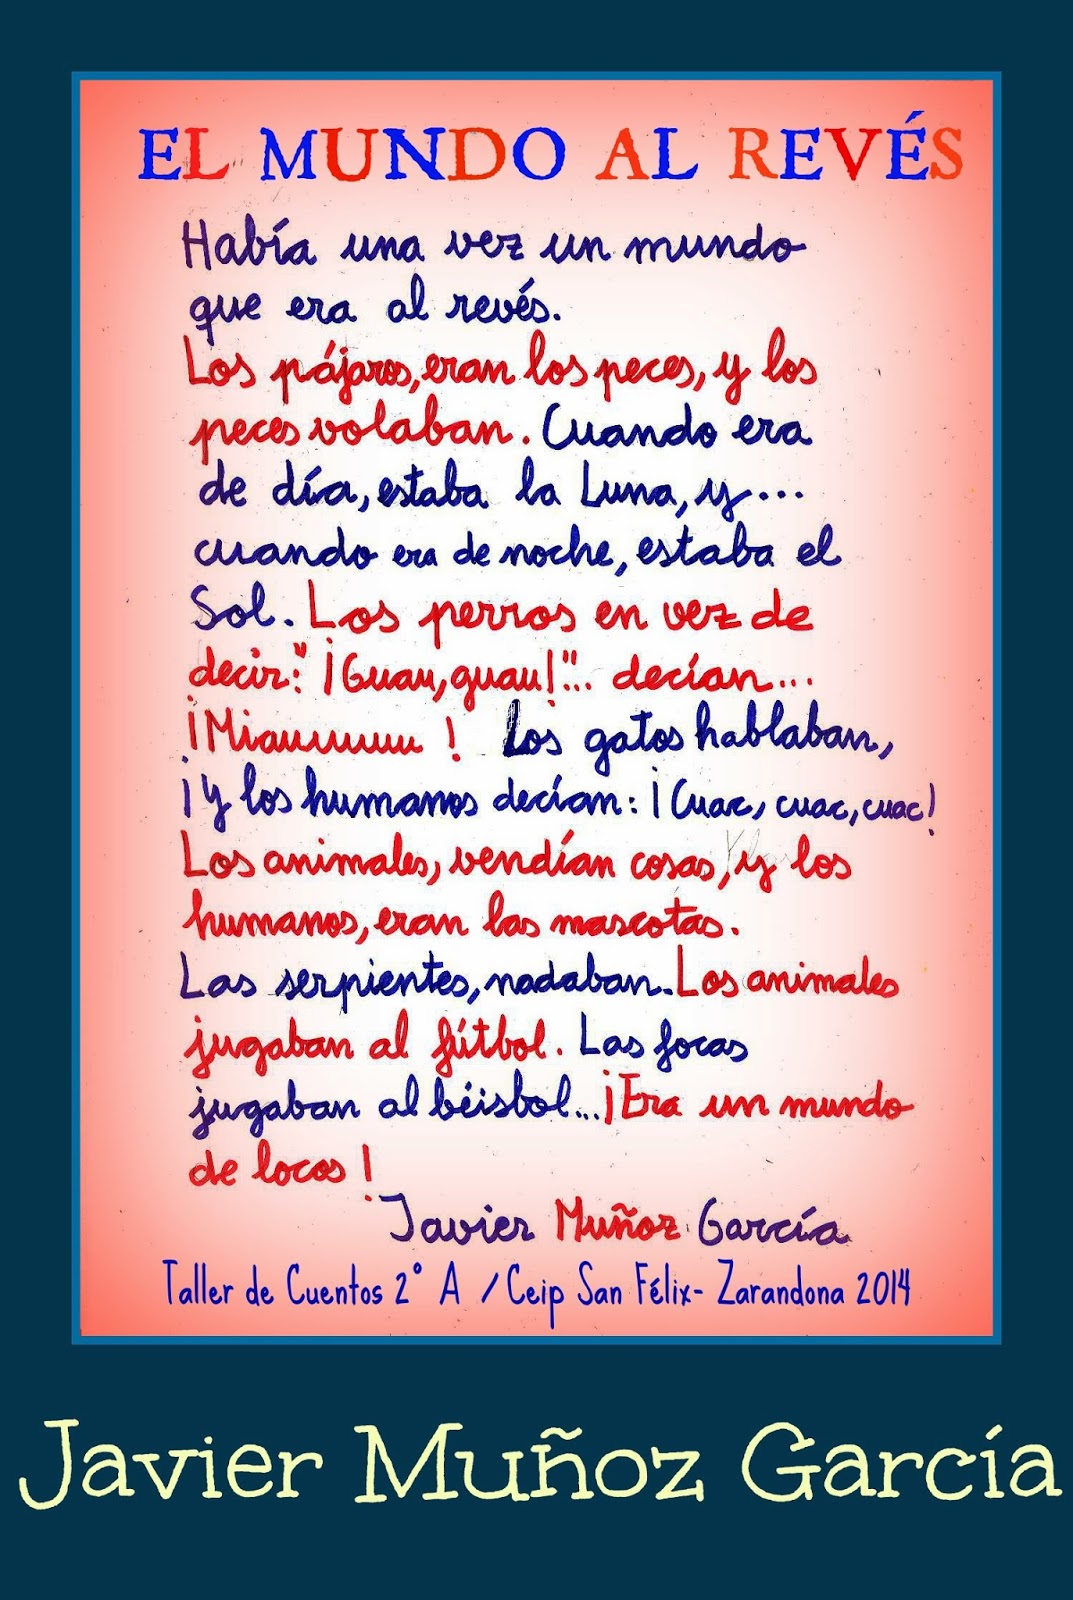 EL MUNDO AL REVÉS
Había una vez un mundo
que era al revés.
Los pájaros, eran los peces, y los
peces volaban. Cuando era
de día, estaba la Luna, y...
cuando era de noche, estaba el
Sol. Los perros en vez de
decir:"¡Guau, guau!"... decían...
¡Miauuuuuu! Los gatos hablaban,
¡Y los humanos decían: ¡Cuac, cuac, cuac!
Los animales, vendían cosas, y los
humanos, eran las mascotas.
Las serpientes, nadaban. Los animales
jugaban al fútbol. Las focas
jugaban al béisbol...¡Era un mundo
de locos!
Javier Muñoz García
Taller de Cuentos 2º A /Ceip San Félix- Zarandona 2014
Javier Muñoz García